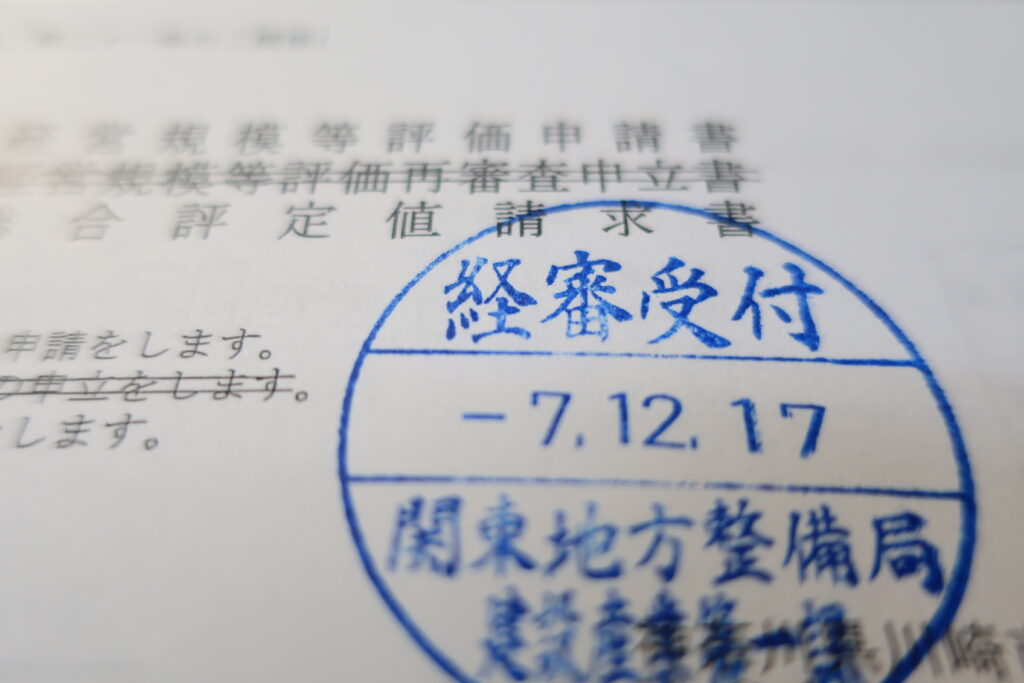 営規模等評価申請書
経営規模等評価再審査申立書
総合評定値請求書
申請をします。
の申立をします。
します。
経審受付
-7.12.17
関東地方整備局
建設産業第一課
川崎